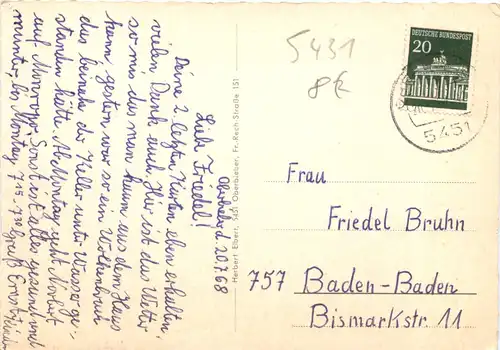 Oberbieber d. 20.7.68
Liebe Friedel!
Deine 2 letzten Karten ehm erhalten.
vielen Dank auch. Hier ist das Wetter
so mis das man kaum aus dem Haus
kann, gestern war so ein Wolkenbruch
das beinahe der Keller unter Wasser ge-
standen hätte. Ab Montag geht Norbert
auf Monroyer. Sonst ist alles gesund und
munter, bis Montag 7 15 - 7 30 Gruß Ernst
Herbert Ebert, 5451 Oberbieber, Fr.-Rech-Straße 151
5431
8€
DEUTSCHE BUNDESPOST
20
5451
Frau
Friedel Bruhn
757 Baden-Baden
Bismarkstr 11